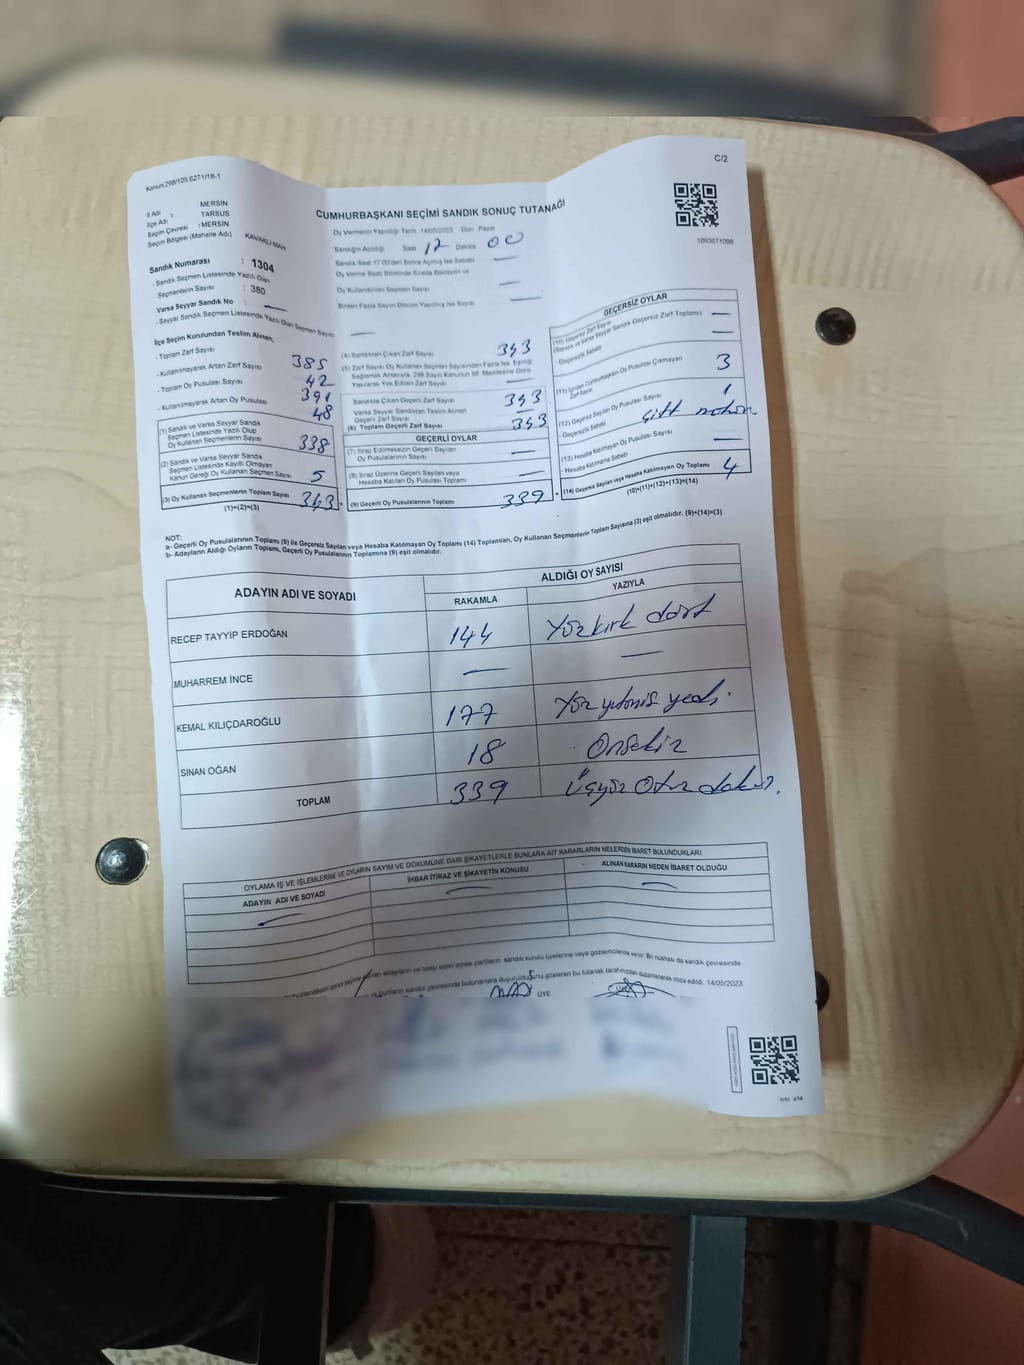 Kanun:298/105 6271/18-1
C/2
İl Adı : MERSİN
İlçe Adı : TARSUS
Seçim Çevresi : MERSİN
Seçim Bölgesi (Mahalle Adı) KAVAKLI MAH
Sandık Numarası : 1304
- Sandık Seçmen Listesinde Yazılı Olan
Seçmenlerin Sayısı : 380
Varsa Seyyar Sandık No : —
- Seyyar Sandık Seçmen Listesinde Yazılı Olan Seçmen Sayısı: —
CUMHURBAŞKANI SEÇİMİ SANDIK SONUÇ TUTANAĞI
Oy Vermenin Yapıldığı Tarih 14/05/2023 Gün Pazar
Sandığın Açıldığı Saat 17 Dakika 00
Sandık Saat 17:00'den Sonra Açılmış İse Sebebi —
Oy Verme Saati Bitiminde Sırada Bekleyen ve
Oy Kullandırılan Seçmen Sayısı —
Birden Fazla Sayım Döküm Yapılmış İse Sayısı —
1093671098
İlçe Seçim Kurulundan Teslim Alınan;
- Toplam Zarf Sayısı 385
- Kullanılmayarak Artan Zarf Sayısı 42
- Toplam Oy Pusulası Sayısı 391
- Kullanılmayarak Artan Oy Pusulası 48
(1) Sandık ve Varsa Seyyar Sandık
Seçmen Listesinde Yazılı Olup
Oy Kullanan Seçmenlerin Sayısı 338
(2) Sandık ve Varsa Seyyar Sandık
Seçmen Listesinde Kayıtlı Olmayan
Kanun Gereği Oy Kullanan Seçmen Sayısı 5
(3) Oy Kullanan Seçmenlerin Toplam Sayısı 343
(1)+(2)=(3)
(4) Sandıktan Çıkan Zarf Sayısı 343
(5) Zarf Sayısı Oy Kullanan Seçmen Sayısından Fazla İse, Eşitliği
Sağlamak Amacıyla, 298 Sayılı Kanunun 98. Maddesine Göre
Yakılarak Yok Edilen Zarf Sayısı —
Sandıkta Çıkan Geçerli Zarf Sayısı 343
Varsa Seyyar Sandıktan Teslim Alınan
Geçerli Zarf Sayısı —
(6) Toplam Geçerli Zarf Sayısı 343
GEÇERLİ OYLAR
(7) İtiraz Edilmeksizin Geçerli Sayılan
Oy Pusulalarının Sayısı —
(8) İtiraz Üzerine Geçerli Sayılan veya
Hesaba Katılan Oy Pusulası Toplamı —
(9) Geçerli Oy Pusulalarının Toplamı 339
GEÇERSİZ OYLAR
(10) Geçersiz Zarf Sayısı
(Sandık ve Varsa Seyyar Sandık Geçersiz Zarf Toplamı) —
- Geçersizlik Sebebi —
(11) İçinden Cumhurbaşkanı Oy Pusulası Çıkmayan
Zarf Sayısı 3
(12) Geçersiz Sayılan Oy Pusulası Sayısı 1
- Geçersizlik Sebebi çift mühür
(13) Hesaba Katılmayan Oy Pusulası Sayısı —
- Hesaba Katılmama Sebebi
(14) Geçersiz Sayılan veya Hesaba Katılmayan Oy Toplamı 4
(10)+(11)+(12)+(13)=(14)
NOT:
a- Geçerli Oy Pusulalarının Toplamı (9) ile Geçersiz Sayılan veya Hesaba Katılmayan Oy Toplamı (14) Toplamları, Oy Kullanan Seçmenlerin Toplam Sayısına (3) eşit olmalıdır. (9)+(14)=(3)
b- Adayların Aldığı Oyların Toplamı, Geçerli Oy Pusulalarının Toplamına (9) eşit olmalıdır.
ADAYIN ADI VE SOYADI ALDIĞI OY SAYISI
RAKAMLA YAZIYLA
RECEP TAYYİP ERDOĞAN 144 Yüzkırk dört
MUHARREM İNCE — —
KEMAL KILIÇDAROĞLU 177 Yüz yetmiş yedi
SİNAN OĞAN 18 Onsekiz
TOPLAM 339 Üçyüz Otuz dokuz.
OYLAMA İŞ VE İŞLEMLERİNE VE OYLARIN SAYIM VE DÖKÜMÜNE DAİR ŞİKAYETLERLE BUNLARA AİT KARARLARIN NELERDEN İBARET BULUNDUKLARI
ADAYIN ADI VE SOYADI İHBAR İTİRAZ VE ŞİKAYETİN KONUSU ALINAN KARARIN NEDEN İBARET OLDUĞU
— — —
sandık kurulu üyelerine veya gözlemcilerine verilir. Bir nüshası da sandık çevresinde
sandık çevresinde bulunanlara duyurulduğunu gösteren bu tutanak tarafımızdan düzenlenerek imza edildi. 14/05/2023
ÜYE